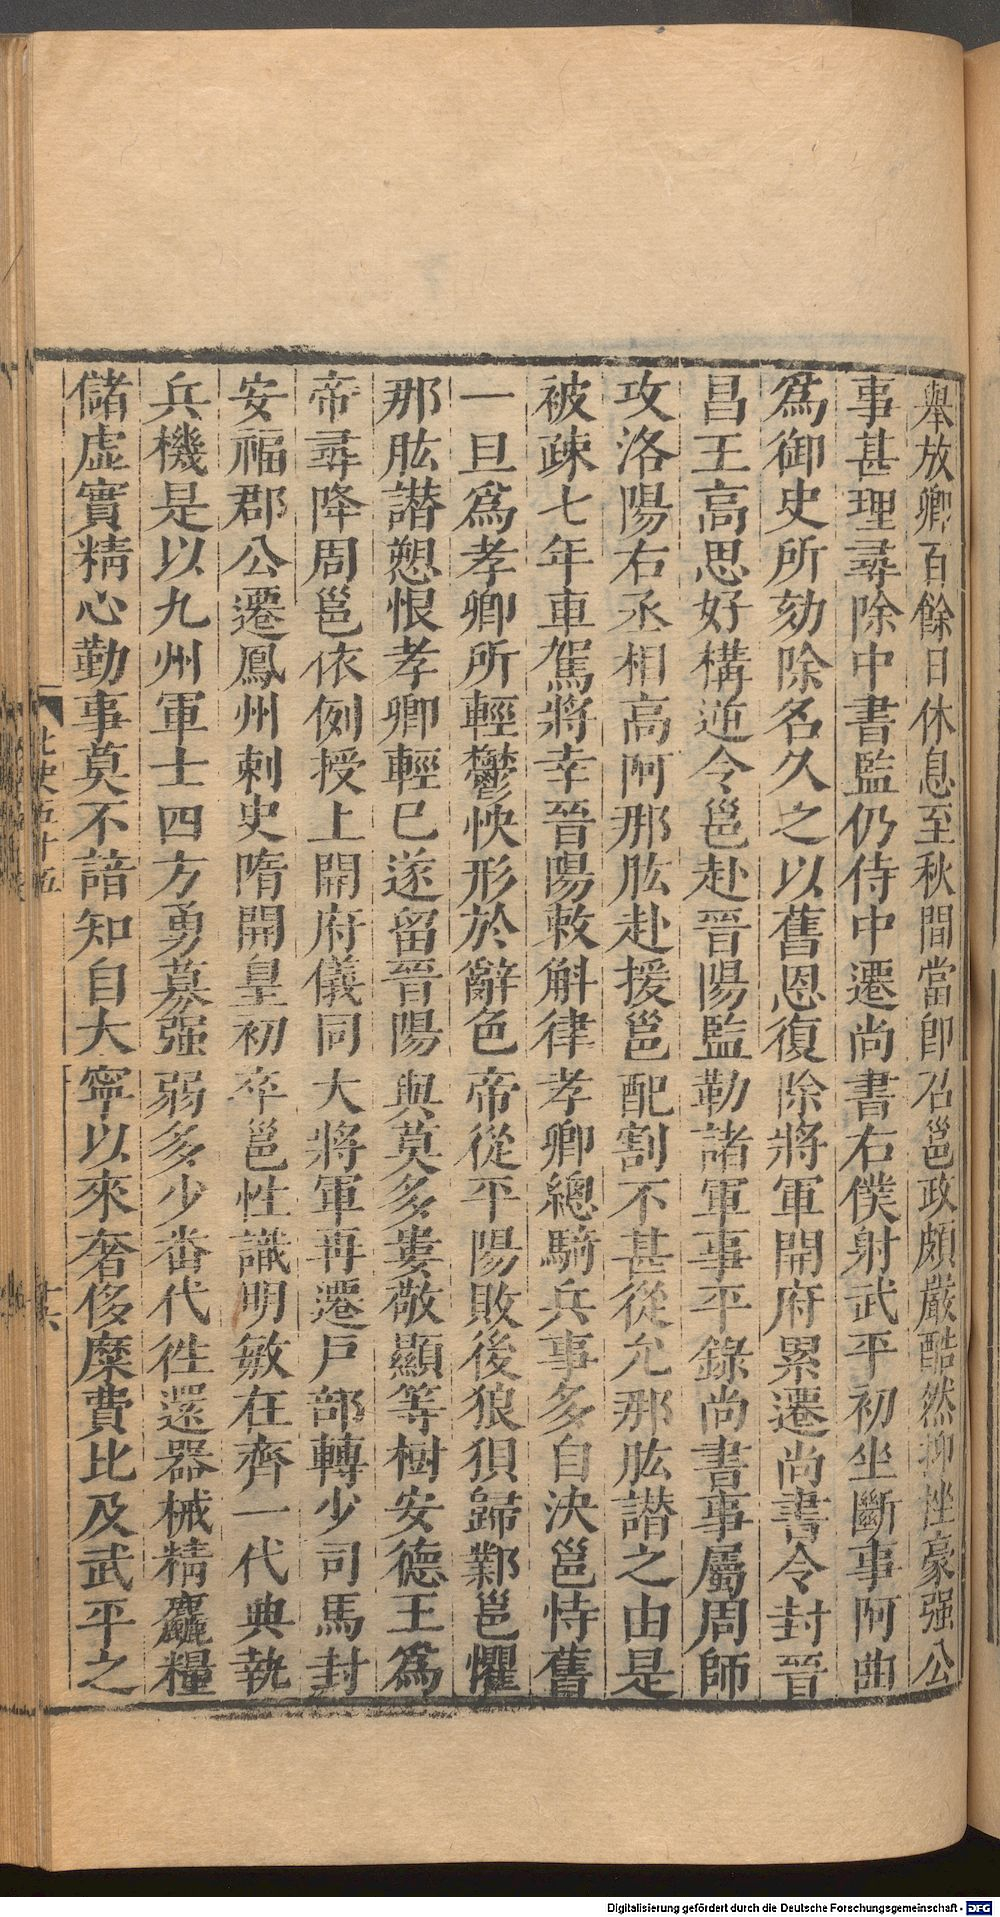 舉放卿百餘日休息至秋間當卽召邕政頗嚴酷然抑挫豪强公
事甚理尋除中書監仍侍中遷尚書右僕射武平初坐斷事阿曲
爲御史所劾除名久之以舊恩復除將軍開府累遷尚書令封晉
昌王高思好構逆令邕赴晉陽監勒諸軍事平錄尚書事屬周師
攻洛陽右丞相高阿那肱赴援邕配割不甚從允那肱譖之由是
被疎七年車駕將幸晉陽敕斛律孝卿總騎兵事多自決邕恃舊
一旦爲孝卿所輕鬱怏形於辭色帝從平陽敗後狼狽歸鄴邕懼
那肱譖愬恨孝卿輕已遂留晉陽與莫多婁敬顯等樹安德王爲
帝尋降周邕依例授上開府儀同大將軍再遷戸部轉少司馬封
安福郡公遷鳳州刺史隋開皇初卒邕性識明敏在齊一代典執
兵機是以九州軍士四方勇募强弱多少畨代徃還器械精麤糧
儲虛實精心勤事莫不諳知自大寧以來奢侈糜費比及武平之
北史五十五
十六
Digitalisierung gefördert durch die Deutsche Forschungsgemeinschaft - DFG